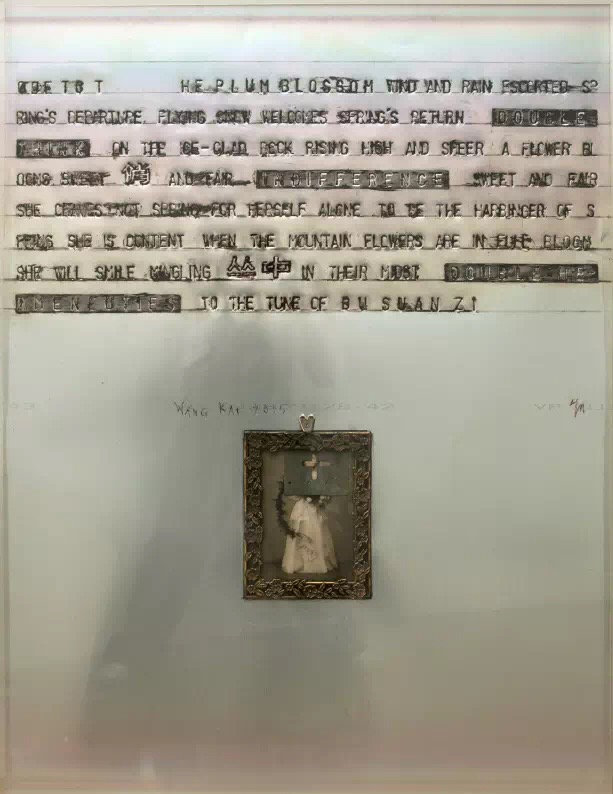 HE PLUM BLOSSOM WIND AND RAIN ESCORTED SP
RING'S DEPARTURE, FLYING SNOW WELCOMES SPRING'S RETURN DOUBLE
ON THE ICE-CLAD ROCK RISING HIGH AND SHEER A FLOWER BL
OOMS SWEET 俏 AND FAIR INDIFFERENCE SWEET AND FAIR
SHE CRAVES NOT SPRING FOR HERSELF ALONE TO BE THE HARBINGER OF S
PRING SHE IS CONTENT WHEN THE MOUNTAIN FLOWERS ARE IN FULL BLOOM
SHE WILL SMILE MINGLING 丛中 IN THEIR MIDST DOUBLE HE
RMENEUTICS TO THE TUNE OF BU SUAN ZI
WANG KAI